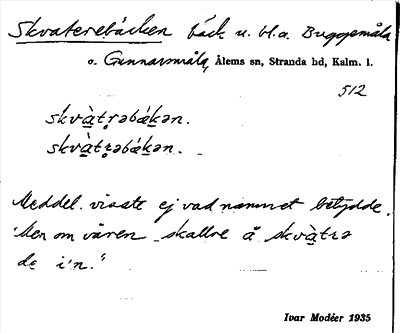 Skvaterebäcken bäck u. bl.a. Buggemåla
o. Gunnarsmåla, Ålems sn, Stranda hd, Kalm. l.
512
skvàt̥rəbák̲ən.
skvàt̥rəbák̲ən.
Meddel. visste ej vad namnet betydde.
"Men om våren skallre å skvàtrə
de i'n."
Ivar Modéer 1935